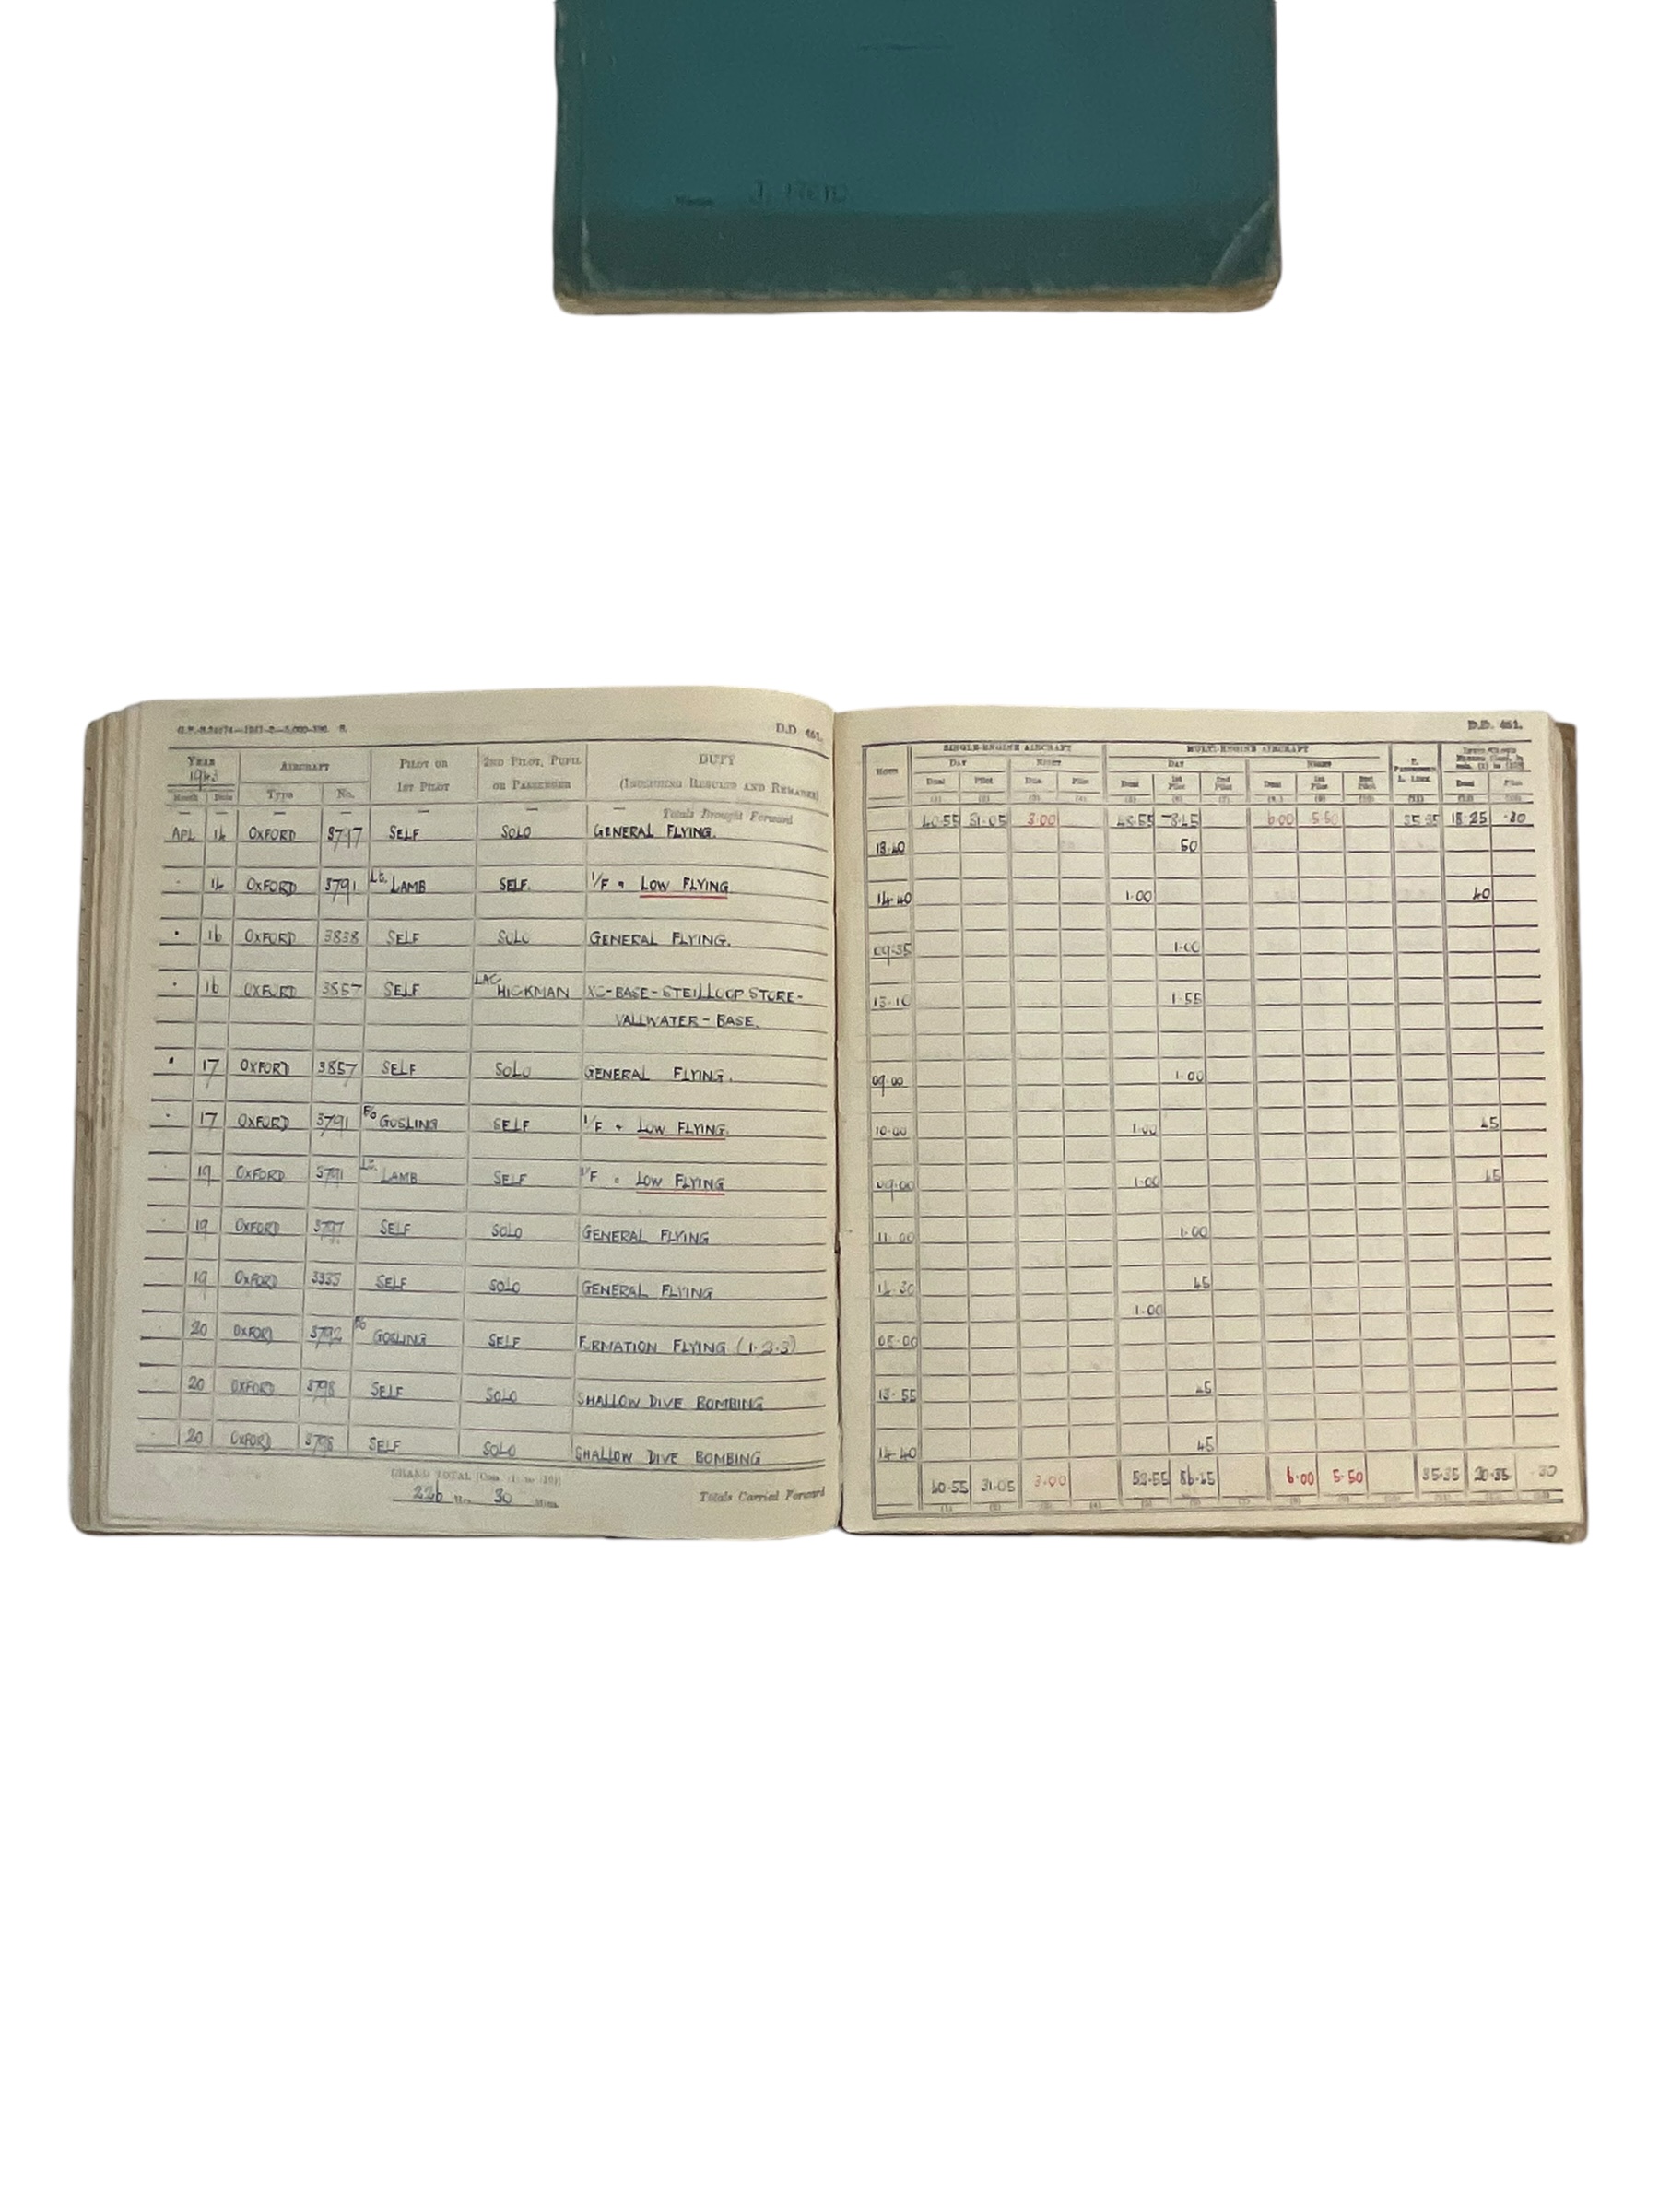 Name J. 
D.D 461.
YEAR 1943 AIRCRAFT PILOT OR 1ST PILOT 2ND PILOT, PUPIL OR PASSENGER DUTY (INCLUDING RESULTS AND REMARKS)
Month Date Type No.
Totals Brought Forward
APL 14 OXFORD 3797 SELF SOLO GENERAL FLYING.
14 OXFORD 3791 Lt. LAMB SELF. I/F + LOW FLYING
16 OXFORD 3838 SELF SOLO GENERAL FLYING.
16 OXFORD 3857 SELF LAC HICKMAN XC-BASE-STEILLOOP STORE-
VAALWATER-BASE.
17 OXFORD 3857 SELF SOLO GENERAL FLYING.
17 OXFORD 3791 F/O GOSLING SELF I/F + LOW FLYING.
19 OXFORD 3791 Lt. LAMB SELF I/F + LOW FLYING
19 OXFORD 3797 SELF SOLO GENERAL FLYING
19 OXFORD SELF SOLO GENERAL FLYING
20 OXFORD 3792 F/O GOSLING SELF FORMATION FLYING (1.2.3)
20 OXFORD 3798 SELF SOLO SHALLOW DIVE BOMBING
20 OXFORD 3798 SELF SOLO SHALLOW DIVE BOMBING
GRAND TOTAL [Cols. (1) to (10)]
226 Hrs. 30 Mins. Totals Carried Forward
D.D. 461.
SINGLE-ENGINE AIRCRAFT MULTI-ENGINE AIRCRAFT
HOUR DAY NIGHT DAY NIGHT
Dual Pilot Dual Pilot Dual 1st Pilot 2nd Pilot Dual 1st Pilot 2nd Pilot Dual Pilot
40.55 31.05 3.00 48.55 78.45 6.00 5.50 35.35 18.25 .30
13.40 50
14.40 1.00 40
09.35 1.00
13.10 1.55
09.00 1.00
10.00 1.00 45
09.00 1.00 45
11.00 1.00
14.30 45
1.00
08.00
13.55 45
14.40 45
40.55 31.05 3.00 52.55 86.45 6.00 5.50 35.35 20.35 .30